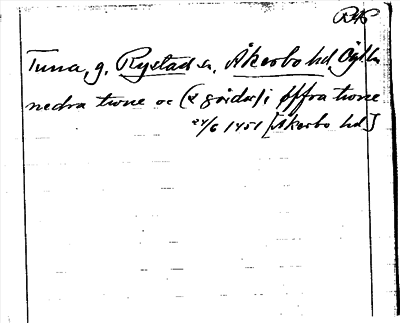 RAP
Tuna, g. Rystad sn, Åkerbo hd, Ögtl.
nedra twne oc (2 gårdar) i öffra twne
24/6 1451 [Åkerbo hd]